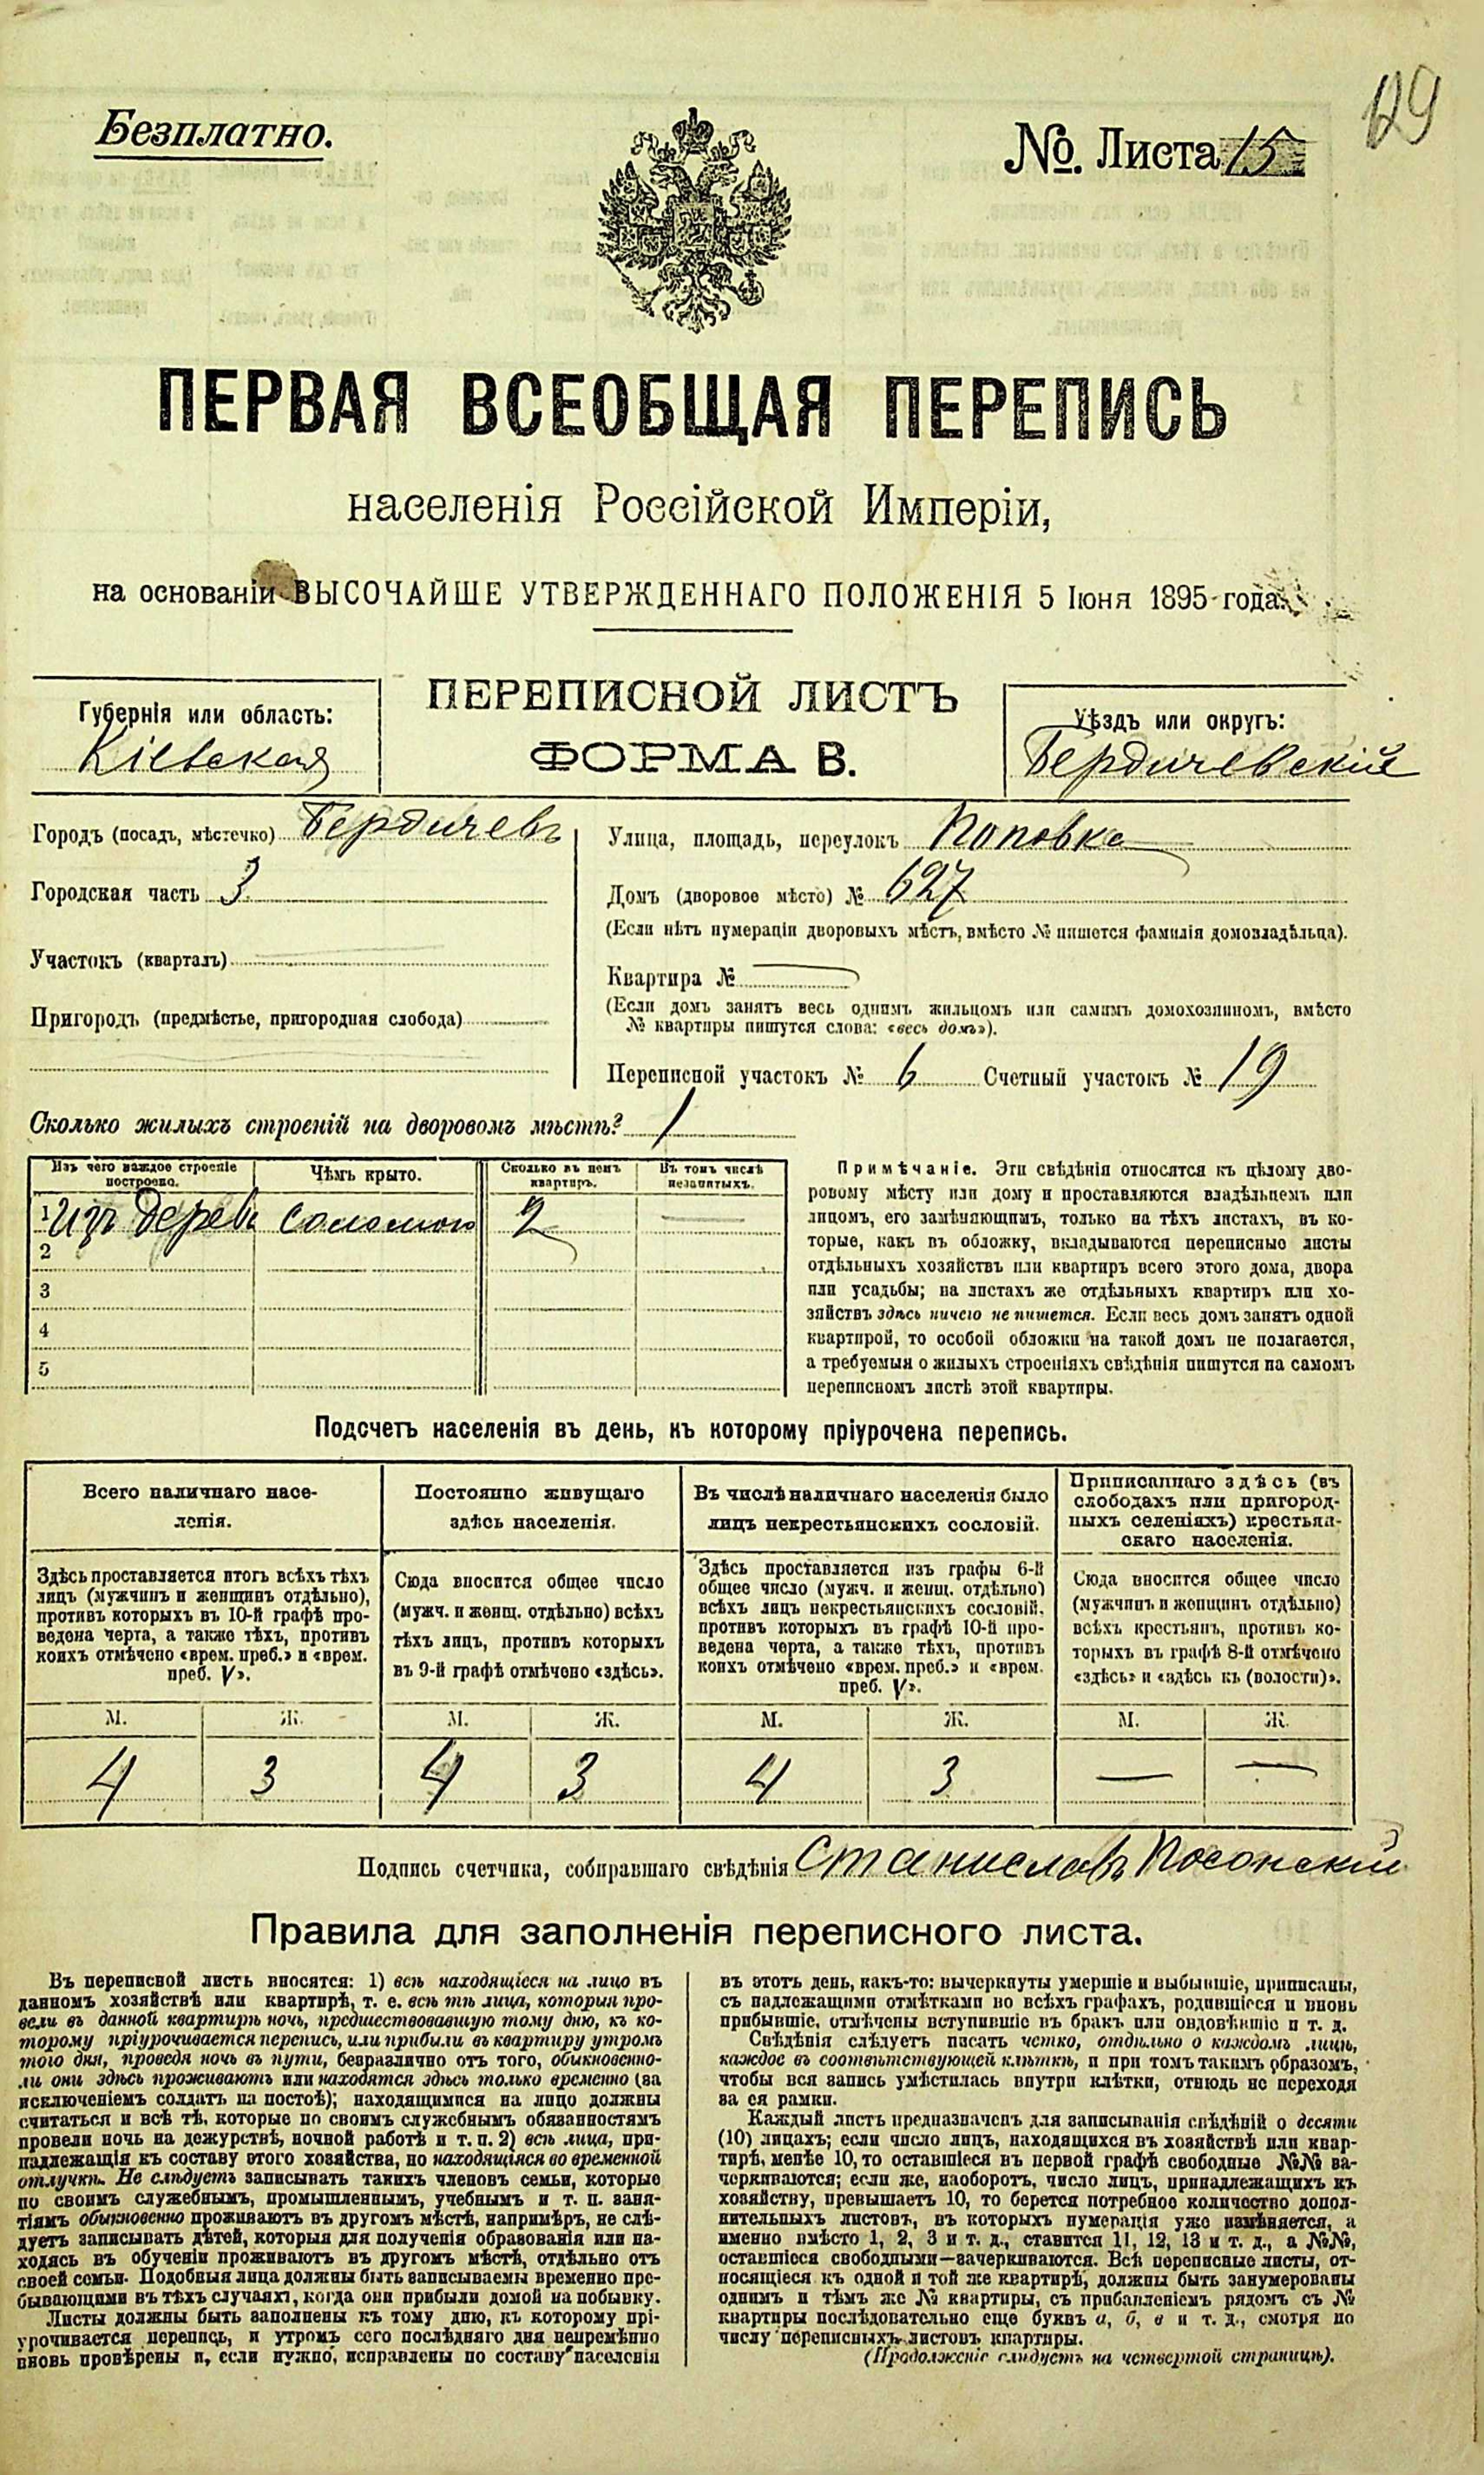 129
Безплатно.
№. Листа 15
ПЕРВАЯ ВСЕОБЩАЯ ПЕРЕПИСЬ
населенія Россійской Имперіи,
на основаніи ВЫСОЧАЙШЕ УТВЕРЖДЕННАГО ПОЛОЖЕНІЯ 5 Іюня 1895 года.
ПЕРЕПИСНОЙ ЛИСТЪ
ФОРМА В.
Губернія или область:
Кіевская
Уѣздъ или округъ:
Бердичевскій
Городъ (посадъ, мѣстечко) Бердичевъ
Городская часть 3
Участокъ (кварталъ)
Пригородъ (предмѣстье, пригородная слобода)
Улица, площадь, переулокъ Поповка
Домъ (дворовое мѣсто) № 627
(Если нѣтъ нумераціи дворовыхъ мѣстъ, вмѣсто № пишется фамилія домовладѣльца).
Квартира №
(Если домъ занятъ весь однимъ жильцомъ или самимъ домохозяиномъ, вмѣсто
№ квартиры пишутся слова: «весь домъ»).
Переписной участокъ № 6 Счетный участокъ № 19
Сколько жилыхъ строеній на дворовомъ мѣстѣ? 1
Изъ чего каждое строеніе
построено.
Чѣмъ крыто.
Сколько въ немъ
квартиръ.
Въ томъ числѣ
незанятыхъ.
1 Изъ дерева соломою 2 —
2
3
4
5
Примѣчаніе. Эти свѣдѣнія относятся къ цѣлому дво-
ровому мѣсту или дому и проставляются владѣльцемъ или
лицомъ, его замѣняющимъ, только на тѣхъ листахъ, въ ко-
торые, какъ въ обложку, вкладываются переписные листы
отдѣльныхъ хозяйствъ или квартиръ всего этого дома, двора
или усадьбы; на листахъ же отдѣльныхъ квартиръ или хо-
зяйствъ здѣсь ничего не пишется. Если весь домъ занятъ одной
квартирой, то особой обложки на такой домъ не полагается,
а требуемыя о жилыхъ строеніяхъ свѣдѣнія пишутся на самомъ
переписномъ листѣ этой квартиры.
Подсчетъ населенія въ день, къ которому пріурочена перепись.
Всего наличнаго насе-
ленія.
Здѣсь проставляется итогъ всѣхъ тѣхъ
лицъ (мужчинъ и женщинъ отдѣльно),
противъ которыхъ въ 10-й графѣ про-
ведена черта, а также тѣхъ, противъ
коихъ отмѣчено «врем. преб.» и «врем.
преб. V».
Постоянно живущаго
здѣсь населенія.
Сюда вносится общее число
(мужч. и женщ. отдѣльно) всѣхъ
тѣхъ лицъ, противъ которыхъ
въ 9-й графѣ отмѣчено «здѣсь».
Въ числѣ наличнаго населенія было
лицъ некрестьянскихъ сословій.
Здѣсь проставляется изъ графы 6-й
общее число (мужч. и женщ. отдѣльно)
всѣхъ лицъ некрестьянскихъ сословій,
противъ которыхъ въ графѣ 10-й про-
ведена черта, а также тѣхъ, противъ
коихъ отмѣчено «врем. преб.» и «врем.
преб. V».
Приписаннаго здѣсь (въ
слободахъ или пригород-
ныхъ селеніяхъ) крестьян-
скаго населенія.
Сюда вносится общее число
(мужчинъ и женщинъ отдѣльно)
всѣхъ крестьянъ, противъ ко-
торыхъ въ графѣ 8-й отмѣчено
«здѣсь» и «здѣсь къ (волости)».
М. Ж. М. Ж. М. Ж. М. Ж.
4 3 4 3 4 3 — —
Подпись счетчика, собиравшаго свѣдѣнія Станиславъ Посонскій
Правила для заполненія переписного листа.
Въ переписной листъ вносятся: 1) всѣ находящіеся на лицо въ
данномъ хозяйствѣ или квартирѣ, т. е. всѣ тѣ лица, которыя про-
вели въ данной квартирѣ ночь, предшествовавшую тому дню, къ ко-
торому пріурочивается перепись, или прибыли въ квартиру утромъ
того дня, проведя ночь въ пути, безразлично отъ того, обыкновенно-
ли они здѣсь проживаютъ или находятся здѣсь только временно (за
исключеніемъ солдатъ на постоѣ); находящимися на лицо должны
считаться и всѣ тѣ, которые по своимъ служебнымъ обязанностямъ
провели ночь на дежурствѣ, ночной работѣ и т. п. 2) всѣ лица, при-
надлежащія къ составу этого хозяйства, но находящіяся во временной
отлучкѣ. Не слѣдуетъ записывать такихъ членовъ семьи, которые
по своимъ служебнымъ, промышленнымъ, учебнымъ и т. п. заня-
тіямъ обыкновенно проживаютъ въ другомъ мѣстѣ, напримѣръ, не слѣ-
дуетъ записывать дѣтей, которыя для полученія образованія или на-
ходясь въ обученіи проживаютъ въ другомъ мѣстѣ, отдѣльно отъ
своей семьи. Подобныя лица должны быть записываемы временно пре-
бывающими въ тѣхъ случаяхъ, когда они прибыли домой на побывку.
Листы должны быть заполнены къ тому дню, къ которому прі-
урочивается перепись, и утромъ сего послѣдняго дня непремѣнно
вновь провѣрены и, если нужно, исправлены по составу населенія
въ этотъ день, какъ-то: вычеркнуты умершіе и выбывшіе, приписаны,
съ надлежащими отмѣтками во всѣхъ графахъ, родившіеся и вновь
прибывшіе, отмѣчены вступившіе въ бракъ или овдовѣвшіе и т. д.
Свѣдѣнія слѣдуетъ писать четко, отдѣльно о каждомъ лицѣ,
каждое въ соотвѣтствующей клѣткѣ, и при томъ такимъ образомъ,
чтобы вся запись умѣстилась внутри клѣтки, отнюдь не переходя
за ея рамки.
Каждый листъ предназначенъ для записыванія свѣдѣній о десяти
(10) лицахъ; если число лицъ, находящихся въ хозяйствѣ или квар-
тирѣ, менѣе 10, то оставшіеся въ первой графѣ свободные №№ за-
черкиваются; если же, наоборотъ, число лицъ, принадлежащихъ къ
хозяйству, превышаетъ 10, то берется потребное количество допол-
нительныхъ листовъ, въ которыхъ нумерація уже измѣняется, а
именно вмѣсто 1, 2, 3 и т. д., ставится 11, 12, 13 и т. д., а №№,
оставшіеся свободными—зачеркиваются. Всѣ переписные листы, от-
носящіеся къ одной и той же квартирѣ, должны быть занумерованы
однимъ и тѣмъ же № квартиры, съ прибавленіемъ рядомъ съ №
квартиры послѣдовательно еще буквъ а, б, в и т. д., смотря по
числу переписныхъ листовъ квартиры.
(Продолженіе слѣдуетъ на четвертой страницѣ).